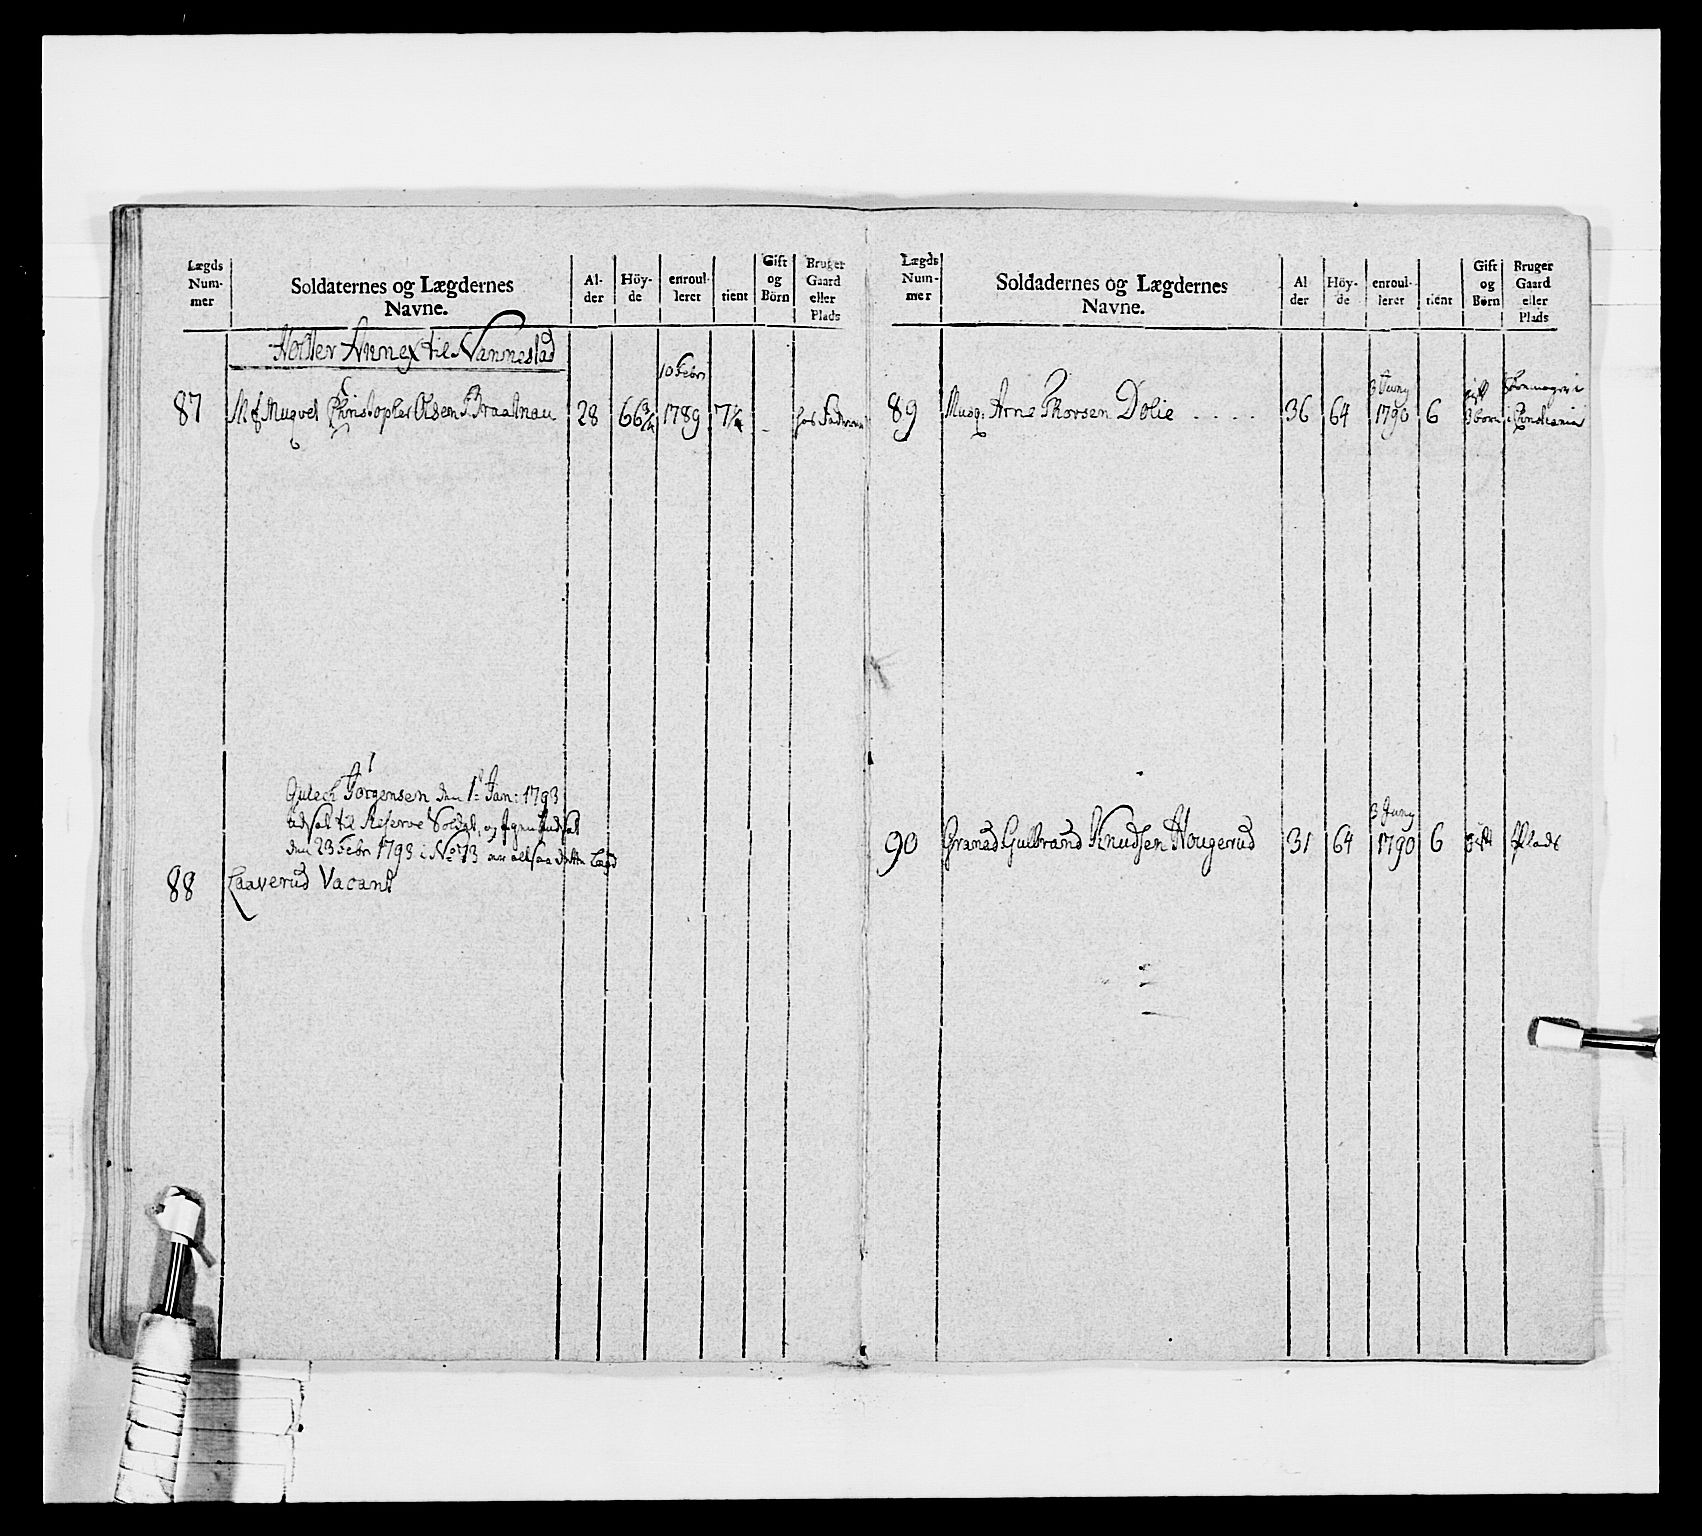 Lægds Num- mer | Soldaternes og Lægdernes Navne. | Al- der | Höy- de | enroul- leret | tient | Gift og Börn | Bruger Gaard eller Plads
Holter Annex til Nannestad
10 Febr
87 Christopher Olsen Braatnau 28 66 3/4 1789 7 1/4 -
Jörgensen den 1t Jan: 1793
udsat til Reserve Soldat, og igen indsat
den 23 Febr 1793 i No 73 altsaa dette Lægd
88 Laaverud Vacant
Lægds Num- mer | Soldadernes og Lægdernes Navne. | Al der | Höy- de | enroul- leret | tient | Gift og Børn | Bruger Gaard eller Plads
3 Juny gift
89 Musq. Arne Thorsen Dolie . . . . 36 64 1790 6 3 born i
3 Juny
90 Granad Gulbrand Knudsen Hougerud 31 64 1790 6 Gift Plads